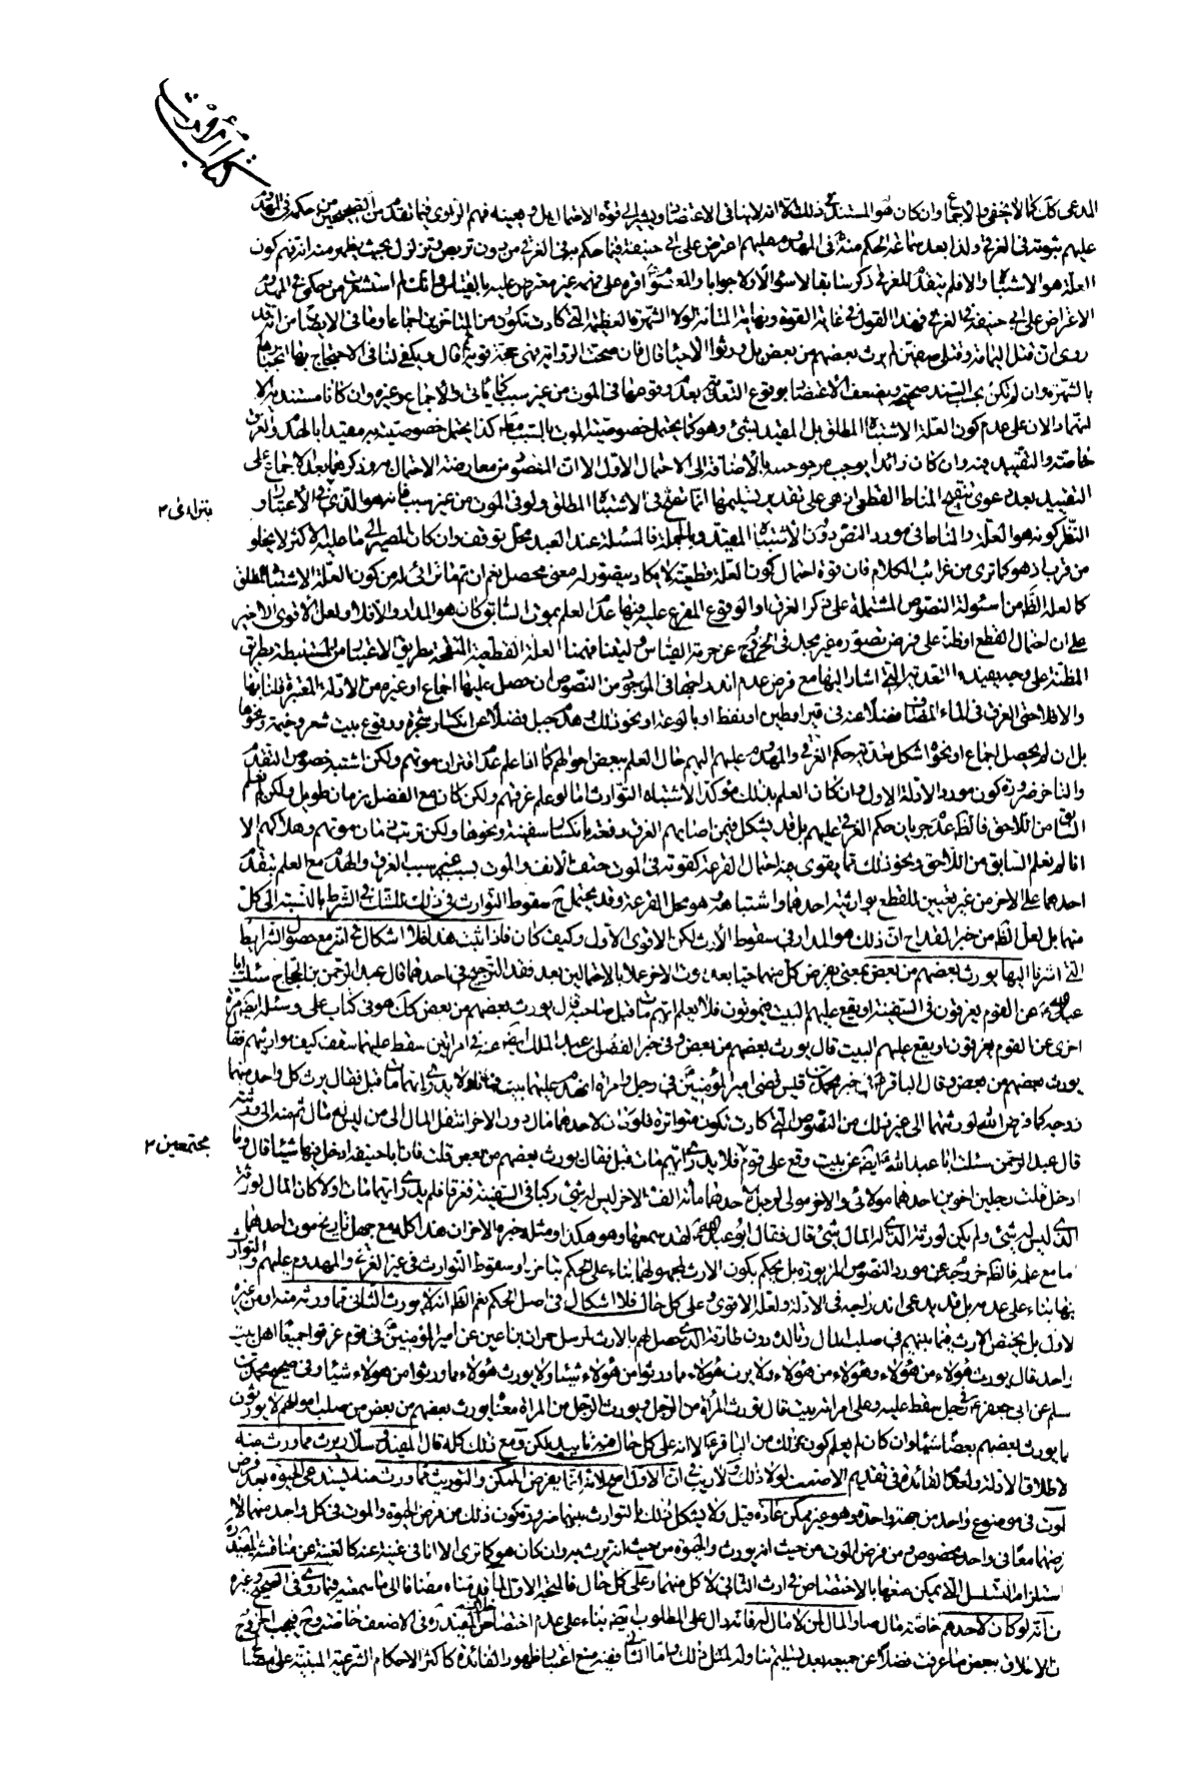 كتاب الإرث
المدعى كل كما لا يخفى والاجماع وان كان هو المستند في ذلك الا انه لا ينافى الاعتضاد ويشير الى قوة الاحتمال بل وتعينه فهم الراوى فيما تقدم من الصحيحين من حكمه فى المهدوم
عليهم ثبوته فى الغرقى ولذا بعد سماعه الحكم منه فى المهدوم عليهم اعترض على ابى حنيفة فيما حكم به فى الغرقى من دون تربص وتزلزل بحيث يظهر منه انه فهم كون
العلة هو الاشتباه والا فلم يتقدم للغرقى ذكر سابقا لا سؤالا ولا جوابا والمعصوم اقره على فهمه غير معترض عليه بالقياس وانك لم استشعرت من حكمى فى المهدوم
الاعتراض على ابى حنيفة فى الغرقى فهذا القول فى غاية القوة ونهاية المتانة لولا الشهرة العظيمة التى كادت تكون من المتاخرين اجماعا وما فى الايضاح من انه قد
روى ان قتلى اليمامة وقتلى صفين لم يرث بعضهم من بعض بل ورثوا الاحياء قال فان صحت الرواية فهى حجة قوية قال ويكفى لنا فى الاحتجاج بها انجبارها
بالشهرة وان لم تكن بحسب السند صحيحة ويضعف الاعتضاد بوقوع التعدى بعد وقوعها فى الموت من غير سبب كما ياتى والاجماع وغيره وان كانا مستندين الا
انهما دالان على عدم كون العلة الاشتباه المطلق بل المقيد بشئ وهو كما يحتمل خصوصية الموت بالسبب كذا يحتمل خصوصيته مقيدا بالهدم والغرق
خاصة والتقييد به وان كان زائدا يوجب مرجوحيته بالاضافة الى الاحتمال الاول الا ان المقصود من معارضة الاحتمال مجرد ذكرهما بعد الاجماع على
التقييد بعد دعوى تنقيح المناط القطعى اذ هى على تقدير تسليمها انما تنفع فى الاشتباه المطلق ولو فى الموت من غير سبب فانه هو الذى فى الاعتبار و
بترائى ٢
النظر كونه هو العلة والمناط فى مورد النص دون الاشتباه المقيد وبالجملة فالمسئلة عند العبد محل توقف وان كان المصير الى ما عليه الاكثر لا يخلو
من قرب اذ هو كما ترى من غرائب الكلام فان قوة احتمال كون العلة قطعية لا يكاد يتصور له معنى محصل نعم ان تم ما تراى له من كون العلة الاشتباه المطلق
كما لعله الظ من اسئولة النصوص المشتملة على ذكر الغرق او الوقوع المفرع عليه فيها عدم العلم بموت السابق كان هو المدار والا فلا ولعل الاقوى الاخير
على ان احتمال القطع او ظنه على فرض تصوره غير مجد فى الخروج عن حرمة القياس وليت ما فهمنا العلة القطعية المنقحة بطريق الاعتبار من المستنبطة بطريق
المظنة على وجه يفيد التعدية التى اشار اليها مع فرض عدم اندراجها فى الموجود من النصوص ان حصل عليها اجماع او غيره من الادلة المعتبرة قلنا بها
والا فلا حتى الغرق فى الماء المضاف فضلا عنه فى قير او طين او نفط او بالوعة او نحو ذلك وهدم جبل فضلا عن انكسار شجرة ووقوع بيت شعر وخيمة ونحوها
بل ان لم يحصل اجماع او نحوه اشكل تعدية حكم الغرقى والمهدوم عليهم اليهم حال العلم ببعض احوالهم كما اذا علم عدم اقتران موتهم ولكن اشتبه خصوص المتقدم
والمتاخر ضرورة كون مورد الادلة الاول وان كان العلم بذلك مؤكدا لاشتباه التوارث اما لو علم غرقهم ولكن كان مع الفصل بزمان طويل ولكن لم نعلم
السابق من اللاحق فالظ عدم جريان حكم الغرقى عليهم بل قد يشكل فيمن اصابهم الغرق دفعة بانكسار سفينة ونحوها ولكن ترتب زمان موتهم وهلاكهم الا
انا لم نعلم السابق من اللاحق ونحو ذلك مما يقوى فيه احتمال القرعة كقوته فى الموت حتف الانف والموت بسبب غير سبب الغرق والهدم مع العلم بتقدم
احدهما على الاخر من غير تعيين للقطع بوارثية احدهما واشتباهه وهو محل القرعة وقد يحتمل ح سقوط التوارث فى ذلك للشك فى الشرط بالنسبة الى كل
منهما بل لعل الظ من خبر القداح ان ذلك هو المدار فى سقوط الارث لكن الاقوى الاول وكيف كان فاذا ثبت هذا فلا اشكال فى انه مع حصول الشرايط
التى اشرنا اليها يورث بعضهم من بعض بمعنى يفرض كل منهما حيا بعد موت الاخر عملا بالاحتمالين بعد فقد الترجيح فى احدهما قال عبد الرحمن بن الحجاج سئلت ابا
عبد الله ع عن القوم يغرقون فى السفينة او يقع عليهم البيت فيموتون فلا يعلم ايهم مات قبل صاحبه قال يورث بعضهم من بعض كك هو فى كتاب على وسئله ايضا مرة
اخرى عن القوم يغرقون او يقع عليهم البيت قال يورث بعضهم من بعض وفى خبر الفضل بن عبد الملك ايضا عنه فى امرأتين سقط عليهما سقف كيف مواريثهم فقال
يورث بعضهم من بعض وقال الباقر فى خبر محمد بن قيس قضى امير المؤمنين فى رجل وامرأة انهدم عليهما بيت فماتا ولا يدرى ايهما مات قبل فقال يرث كل واحد منهما
زوجه كما فرض الله لورثتهما الى غير ذلك من النصوص التى كادت تكون متواترة فلو كان لاحدهما مال دون الاخر انتقل المال الى من ليس له مال ثم منه الى ورثته
قال عبد الرحمن سئلت ابا عبد الله ايضا عن بيت وقع على قوم فلا يدرى ايهم مات قبل فقال يورث بعضهم من بعض قلت فان ابا حنيفة ادخل فيها شيئا قال وما
مجتمعين ٢
ادخل قلت رجلين اخوين احدهما مولاى والاخر مولى لرجل لاحدهما مائة الف والاخر ليس له شئ ركبا فى السفينة فغرقا فلم يدر ايهما مات اولا كان المال لورثة
الذى ليس له شئ ولم يكن لورثة الذى له المال شئ قال فقال ابو عبد الله لقد سمعها وهو هكذا ومثله خبره الاخر ان هذا كله مع جهل تاريخ موت احدهما
اما مع علمه فالظ خروجه عن مورد النصوص المزبورة بل يحكم بكون الارث لمجهولهما بناء على الحكم بتاخره او سقوط التوارث فى غير الغرقى والمهدوم عليهم والتوارث
بها بناء على عدمه بل قد يدعى اندراجه فى الادلة ولعله الاقوى وعلى كل حال فلا اشكال فى اصل الحكم نعم الظ انه لا يورث الثانى مما ورثه منه او من غيره
لاول بل يختص الارث فيما بينهم فى صلب المال وتالده دون طارفه الذى حصل لهم بالارث لمرسل حمران بن اعين عن امير المؤمنين فى قوم غرقوا جميعا اهل بيت
واحد قال يورث هؤلاء من هؤلاء وهؤلاء من هؤلاء ولا يرث هؤلاء مما ورثوا من هؤلاء شيئا ولا يورث هؤلاء مما ورثوا من هؤلاء شيئا وفى صحيح محمد بن
سلم عن ابى جعفر فى رجل سقط عليه وعلى امراته بيت قال تورث المرأة من الرجل ويورث الرجل من المرأة معناه يورث بعضهم من بعض من صلب اموالهم لا يورثون
ما يورث بعضهم بعضا شيئا وان كان لم يعلم كون ذلك من الباقر الا انه على كل حال فيه تاييد لكن ومع ذلك كله قال المفيد وسلار يرث مما ورث منه
لاطلاق الادلة ولعدم الفائدة فى تقديم الاضعف لولا ذلك ولا ريب فى ان الاول اصح لانه انما يفرض الممكن والتوريث مما ورث منه يستدعى الحيوة بعد فرض
لموت فى موضوع واحد من جهة واحدة وهو غير ممكن عادة قيل ولا يشكل ذلك بالتوارث بينهما ضرورة كون ذلك من فرض الحيوة والموت فى كل واحد منهما لا
رضهما معا فى واحد بخصوصه من فرض الموت من حيث انه يورث والحيوة من حيث انه يرث وان كان هو كما ترى الا انا فى غنية عنه كالغنية عن مناقشة المفيد
استلزامه التسلسل الذى يمكن منعها بالاختصاص فى ارث الثانى لا كل منهما وعلى كل حال فالحجة الاولى ما قدمناه مضافا الى ما سمعته فيما روى فى الصحيح وغيره
ن انه لو كان لاحدهم خاصة مال صار المال لمن لا مال له فانه دال على المطلوب ايضا بناء على عدم اختصاص التقييد فى الاضعف خاصة وح فيجب الخروج
ن الاطلاق ببعض ما عرفت فضلا عن جميعه بعد تسليم تناوله لمثل ذلك واما الثانى ففيه منع اعتبار ظهور الفائدة كاكثر الاحكام الشرعية المبنية على